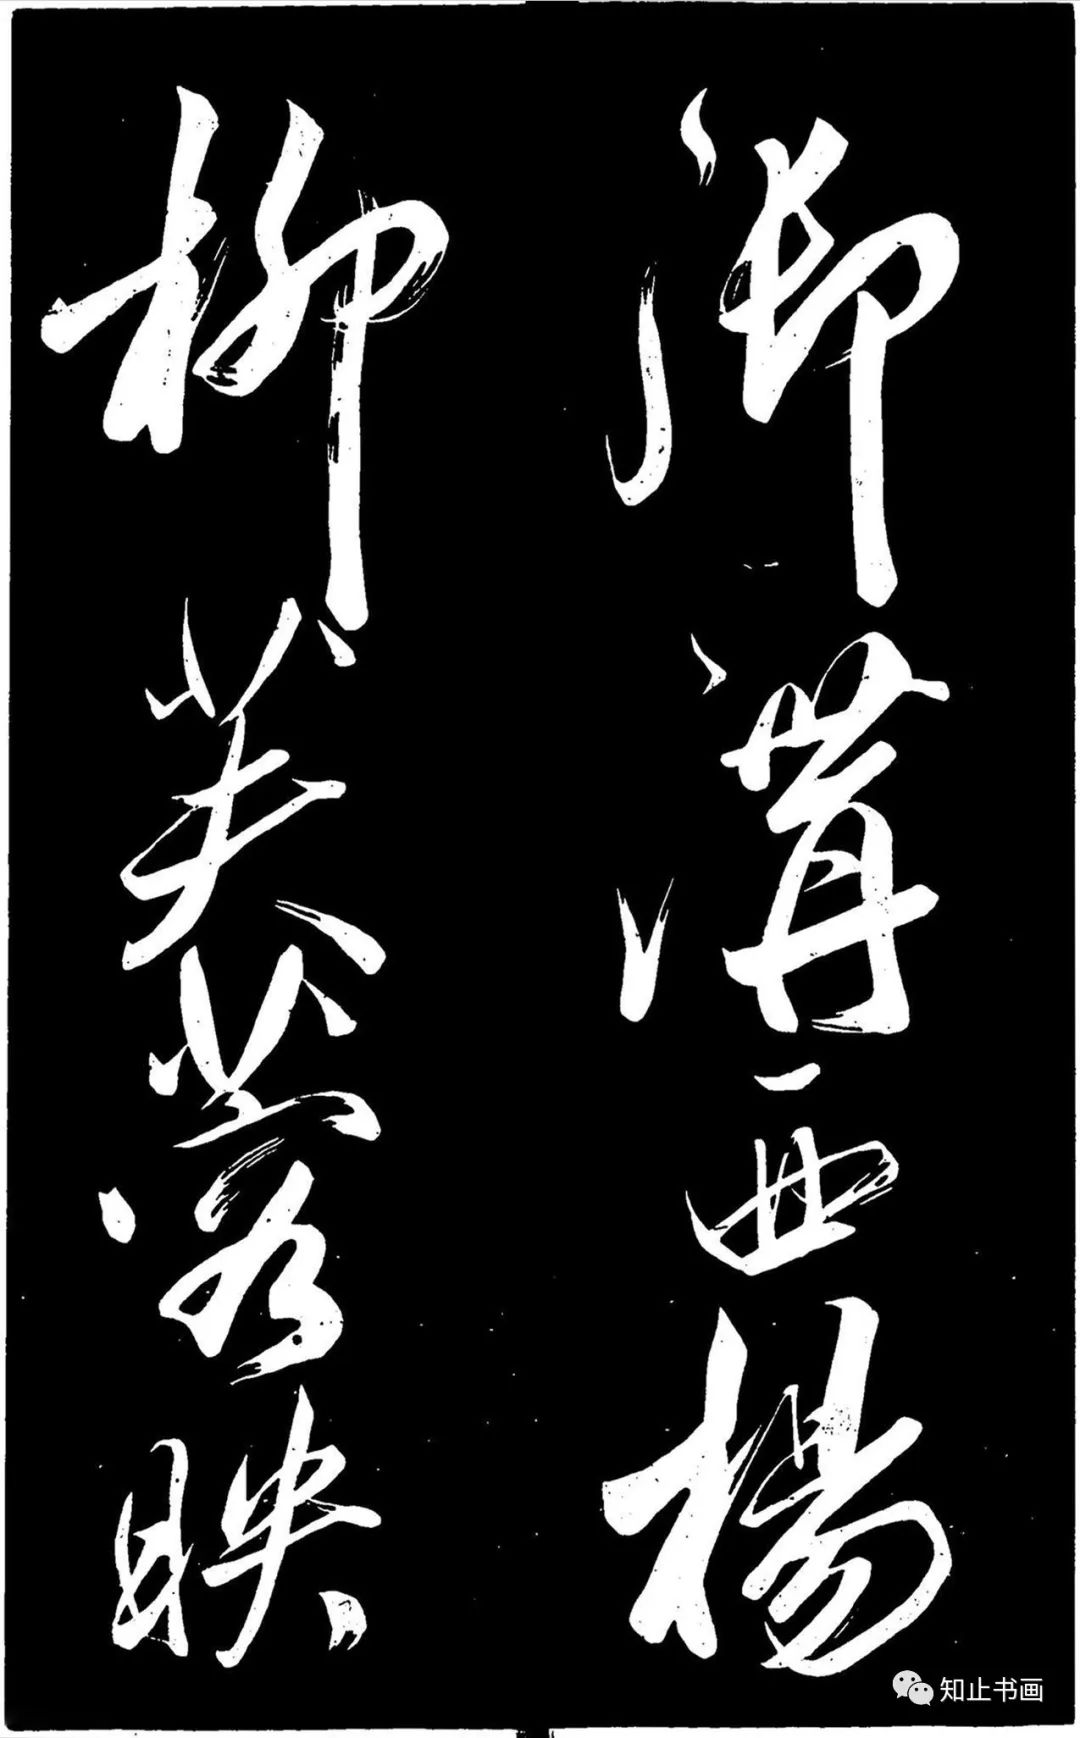 御溝西楊
柳芙蓉映
知止书画